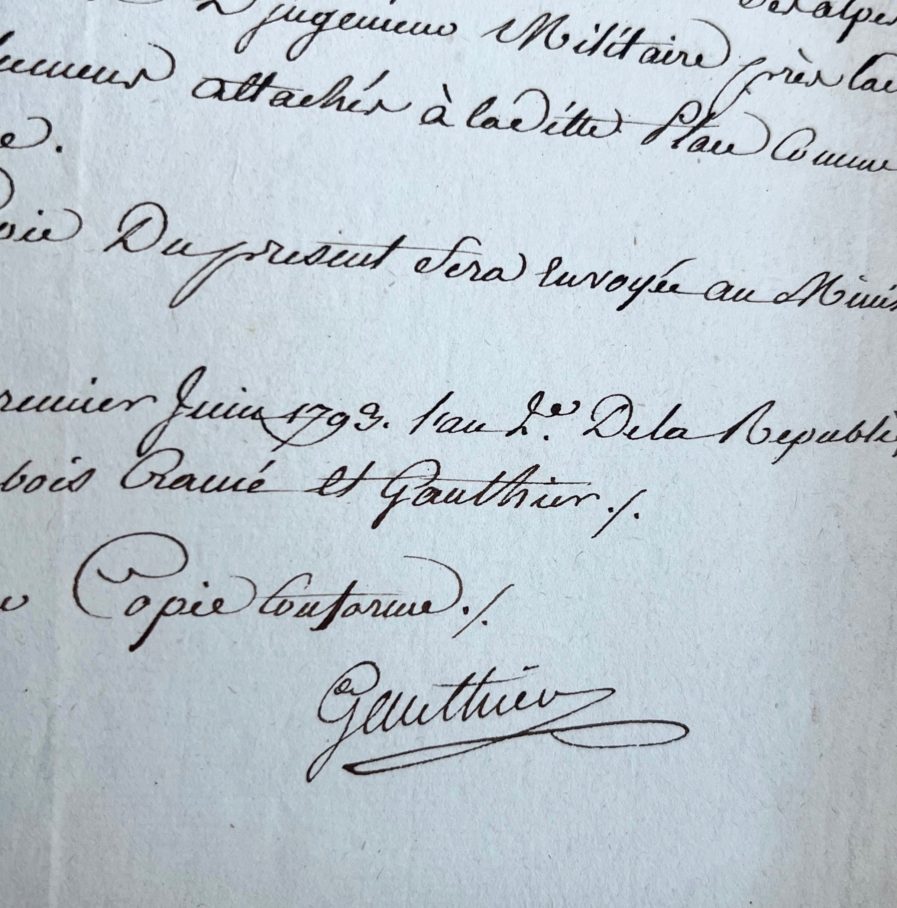 Des alpes
D'jngenieur Militaire près la
attachés à laditte Place Comme
e.
Du present Sera Envoyée au Minis
remier Juin 1793. l'an 2e. De la Republi
bois Crancé et Gauthier ./.
Copie Conforme ./.
Gauthier